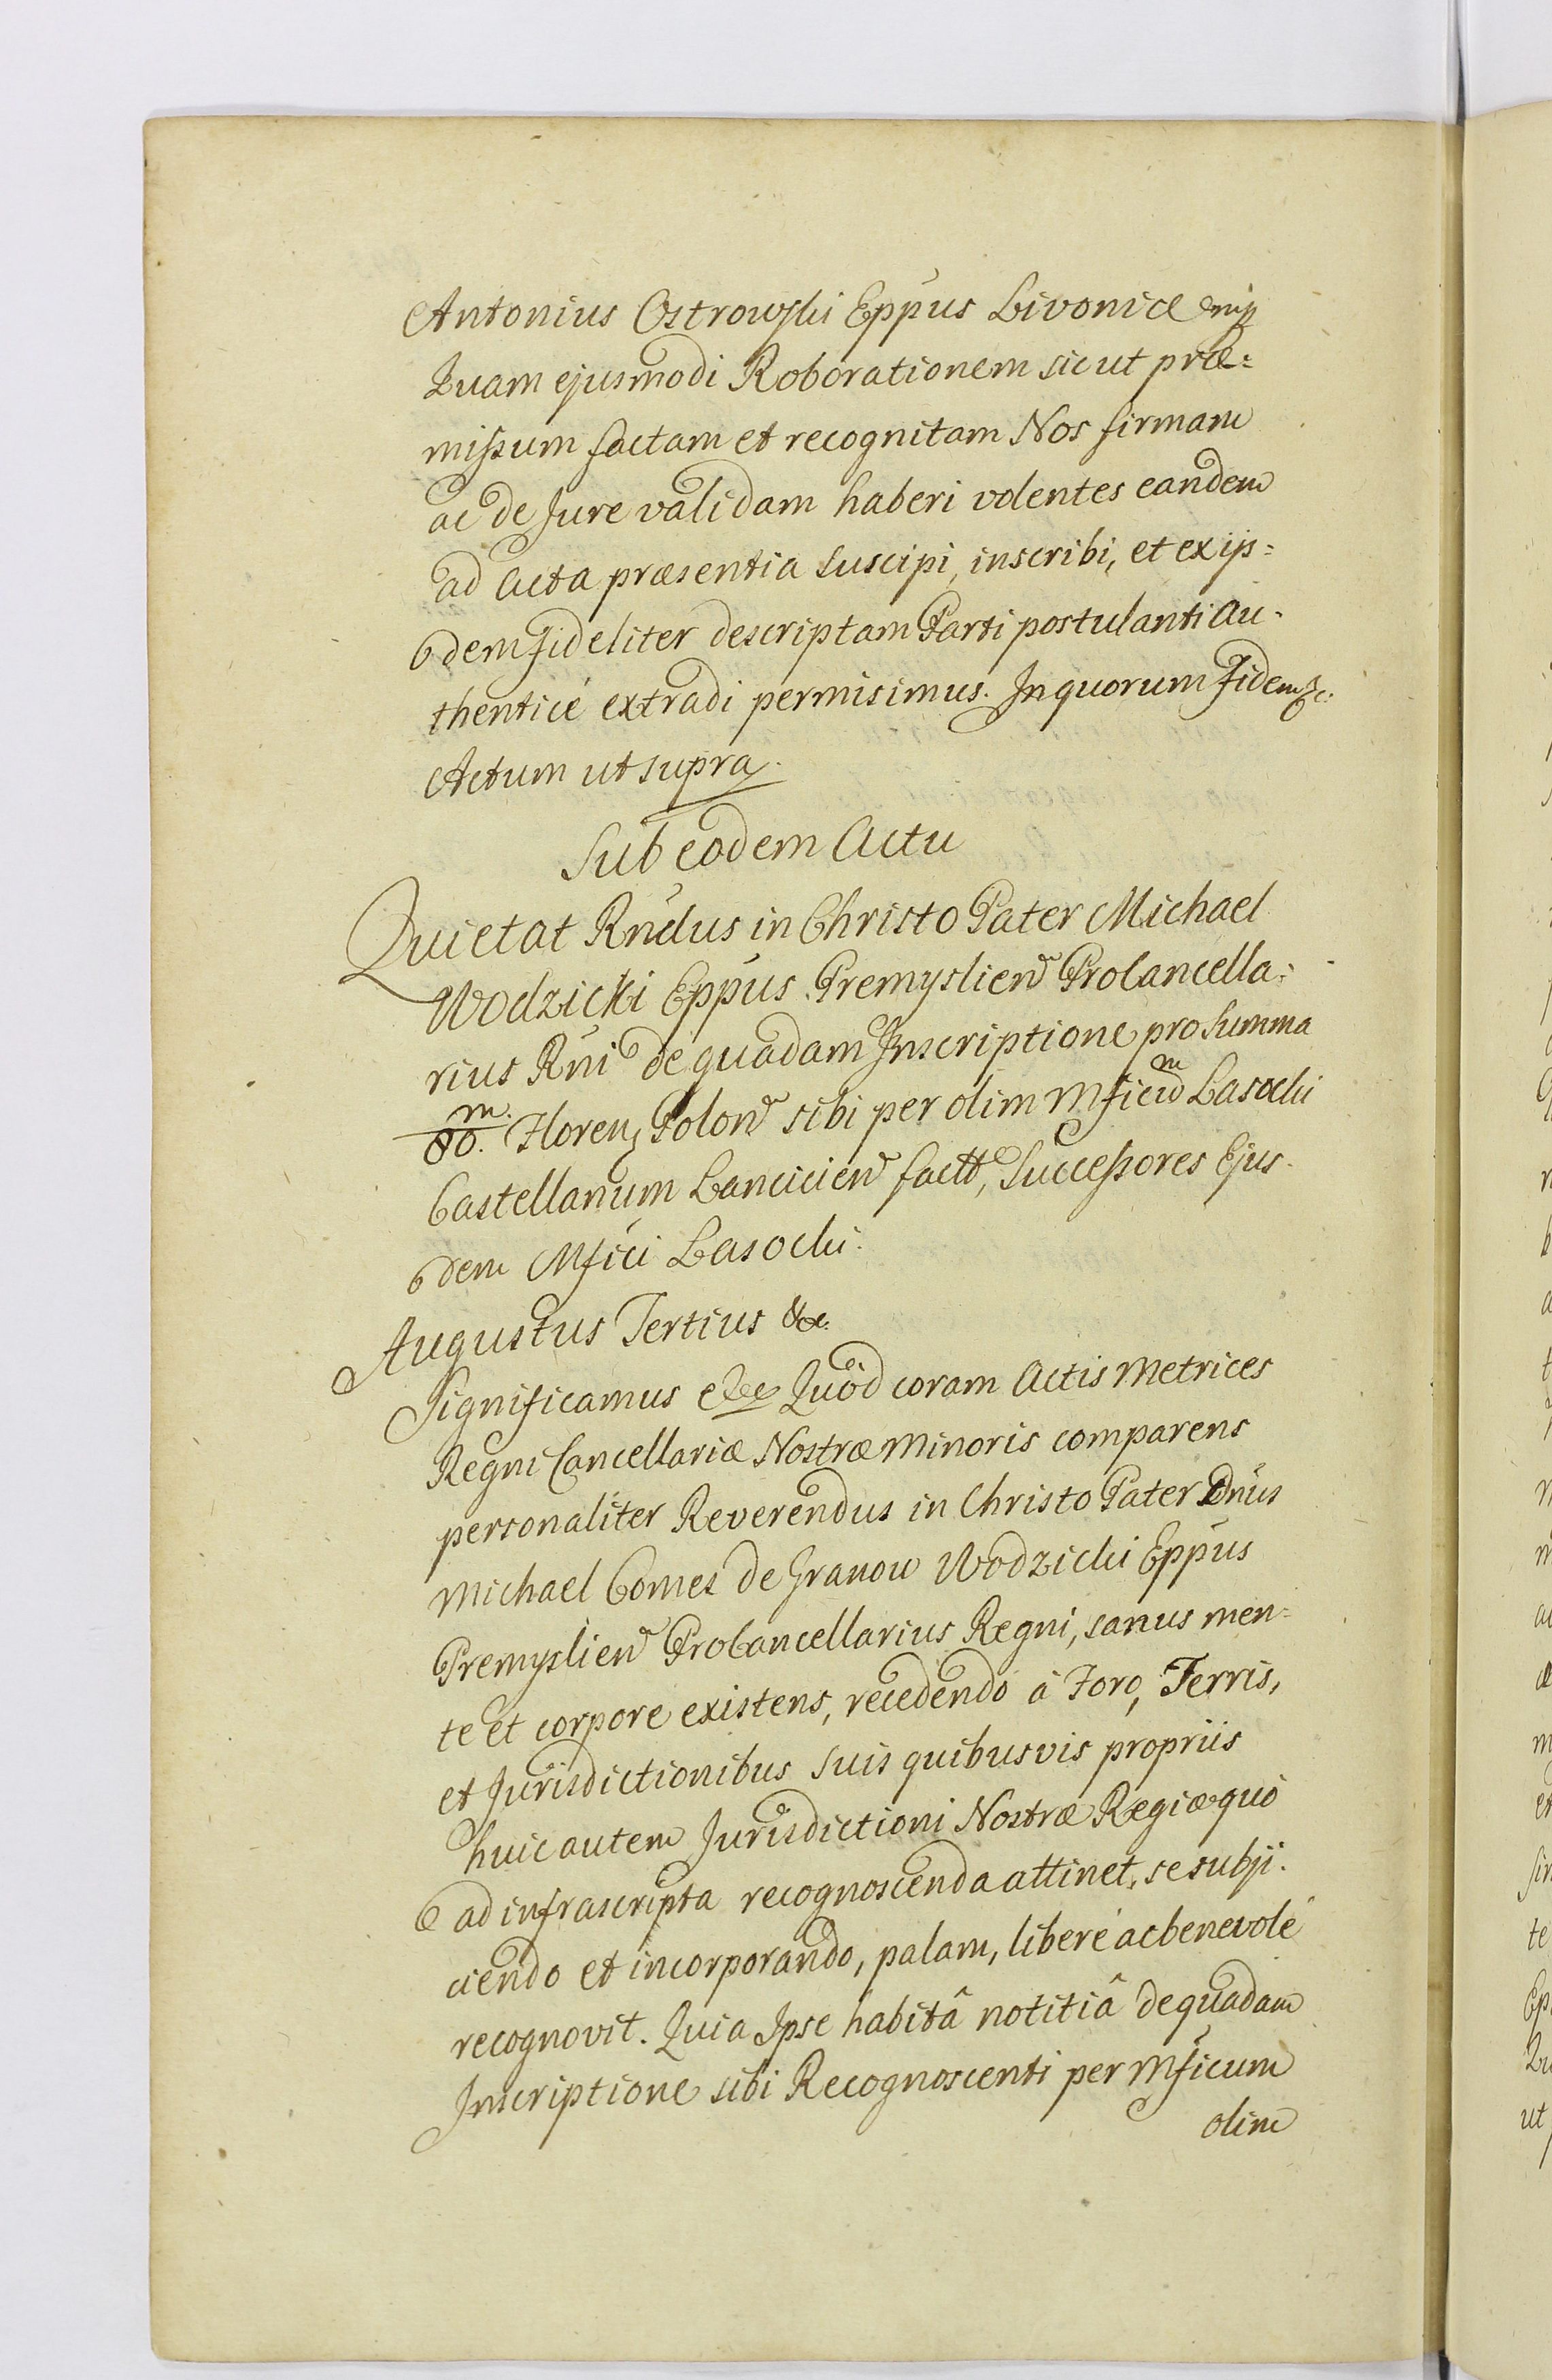 Antonius Ostrowski Eppus Livoniæ mp
Quam ejusmodi Roborationem sicut præ=
missum factam et recognitam Nos firmam
ac de Jure validam haberi volentes eandem
ad Acta præsentia suscipi, inscribi, et ex ijs=
dem fideliter descriptam Parti postulanti au-
thenticé extradi permisimus. In quorum Fidem &c.
Actum ut supra.
Sub eodem Actu
Quietat Rndus in Christo Pater Michael
Wodzicki Eppus Premyslien Procancella-
rius Rni de quadam Inscriptione pro summa
m/80. Floren Polon sibi per olim Mficum Lasocki
Castellanum Lancicien factt, Successores Ejus-
dem Mfici Lasocki.
Augustus Tertius &c.
Significamus &c Quód coram Actis Metrices
Regni Cancellariæ Nostræ Minoris comparens
personaliter Reverendus in Christo Pater Dnus
Michael Comes de Granow Wodzicki Eppus
Premyslien Procancellarius Regni, sanus men=
te et corpore existens, recedendo á Foro, Terris,
et Jurisdictionibus suis quibusvis propriis
huic autem Jurisdictioni Nostræ Regiæ quó
ad infrascripta recognoscenda attinet, se subji-
ciendo et incorporando, palam, liberé ac benevolé
recognovit. Quia Ipse habitâ notitiâ de quadam
Inscriptione sibi Recognoscenti per Mficum
olim